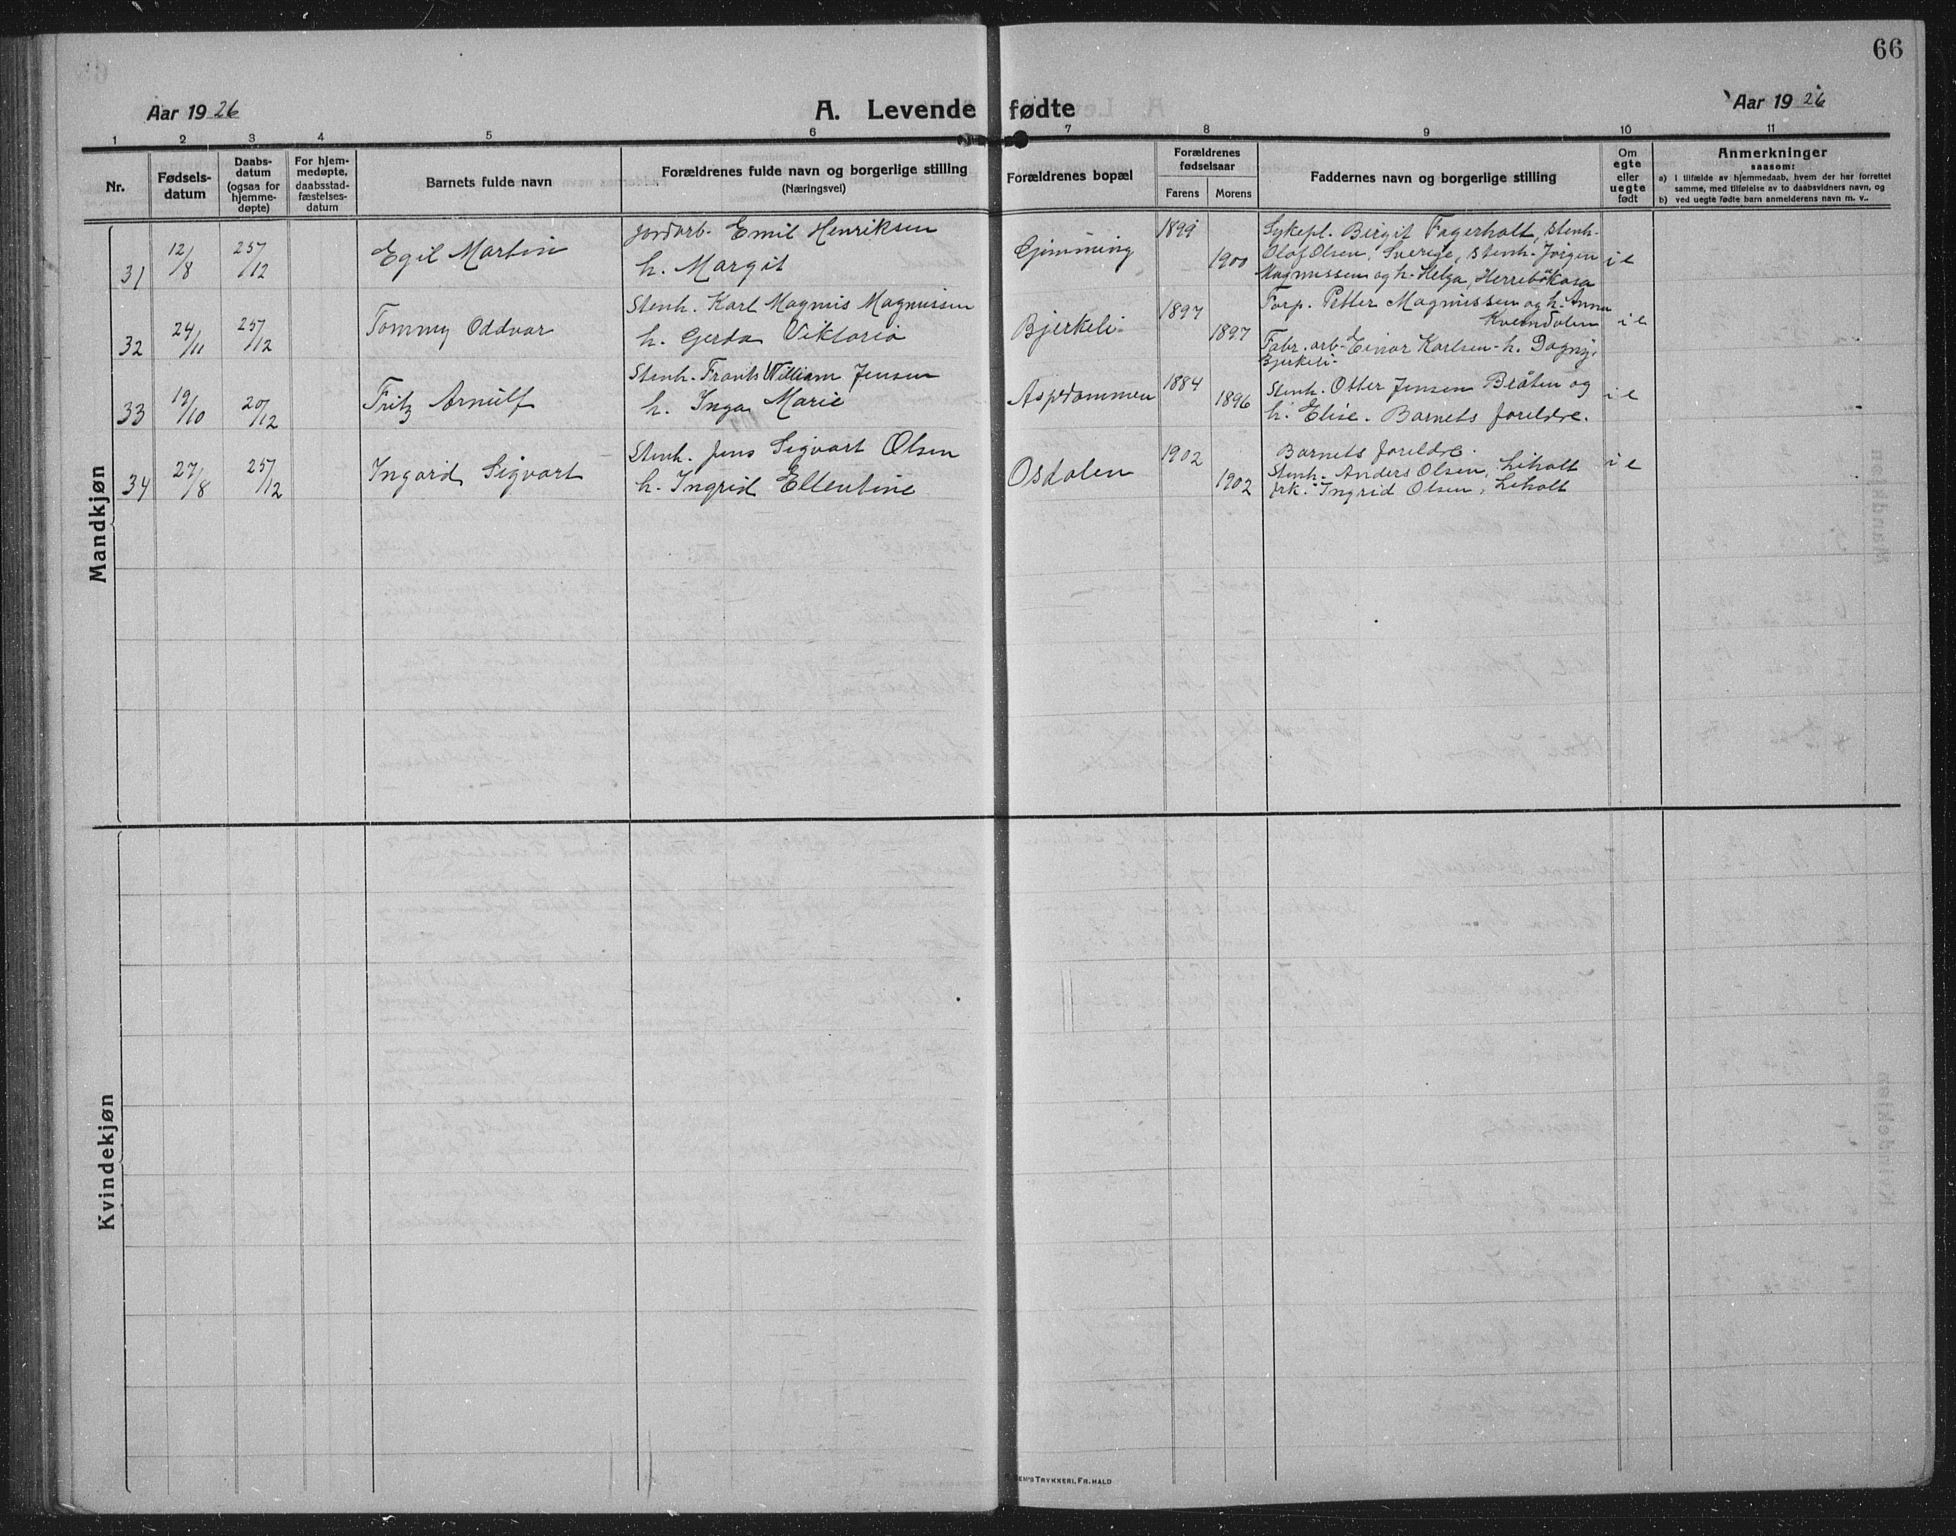 66
Aar 1926
A. Levende fødte
Aar 1926
1 2 3 4 5 6 7 8 9 10 11
Nr.
Fødsels-
datum
Daabs-
datum
(ogsaa for
hjemme-
døpte)
For hjem-
medøpte,
daabsstad-
fæstelses-
datum
Barnets fulde navn
Forældrenes fulde navn og borgerlige stilling
(Næringsvei)
Forældrenes bopæl
Forældrenes
fødselsaar
Farens Morens
Faddernes navn og borgerlige stilling
Om
egte
eller
uegte
født
Anmerkninger
saasom:
a) i tilfælde av hjemmedaab, hvem der har forrettet
samme, med tilføielse av to daabsvidners navn, og
b) ved uegte fødte barn anmelderens navn m. v..
Mandkjøn
31 12/8 25/12 Egil Martin
Jordarb. Emil Henriksen
h. Margit
Gjimming 1899 1900
Sykepl. Birgit Fagerholt, Stenh.
Olof Olsen, Sverige, Stenh. Jörgen
Magnussen og h. Helga, Herrebökasa
i e
32 24/11 25/12 Tommy Oddvar
Stenh. Karl Magnus Magnussen
h. Gerda Viktoria
Bjerkeli 1897 1897
Forp. Petter Magnussen og h. Anna
Kverndalen
Fabr. arb. Einar Karlsen - h. Dagny,
Bjerkeli
i e
33 19/10 20/12 Fritz Arnulf
Stenh. Frants William Jensen
h. Inga Marie
Aspedammen 1884 1896
Stenh. Otter Jensen Bråten og
h. Elise. Barnets foreldre.
i e
34 27/8 25/12 Ingard Sigvart
Stenh. Jens Sigvart Olsen
h. Ingrid Ellentine
Osdalen 1902 1902
Barnets foreldre.
Stenh. Anders Olsen, Liholt
frk. Ingrid Olsen, Liholt
i e
Kvindekjøn
EN'S TRYKKERI, FR. HALD